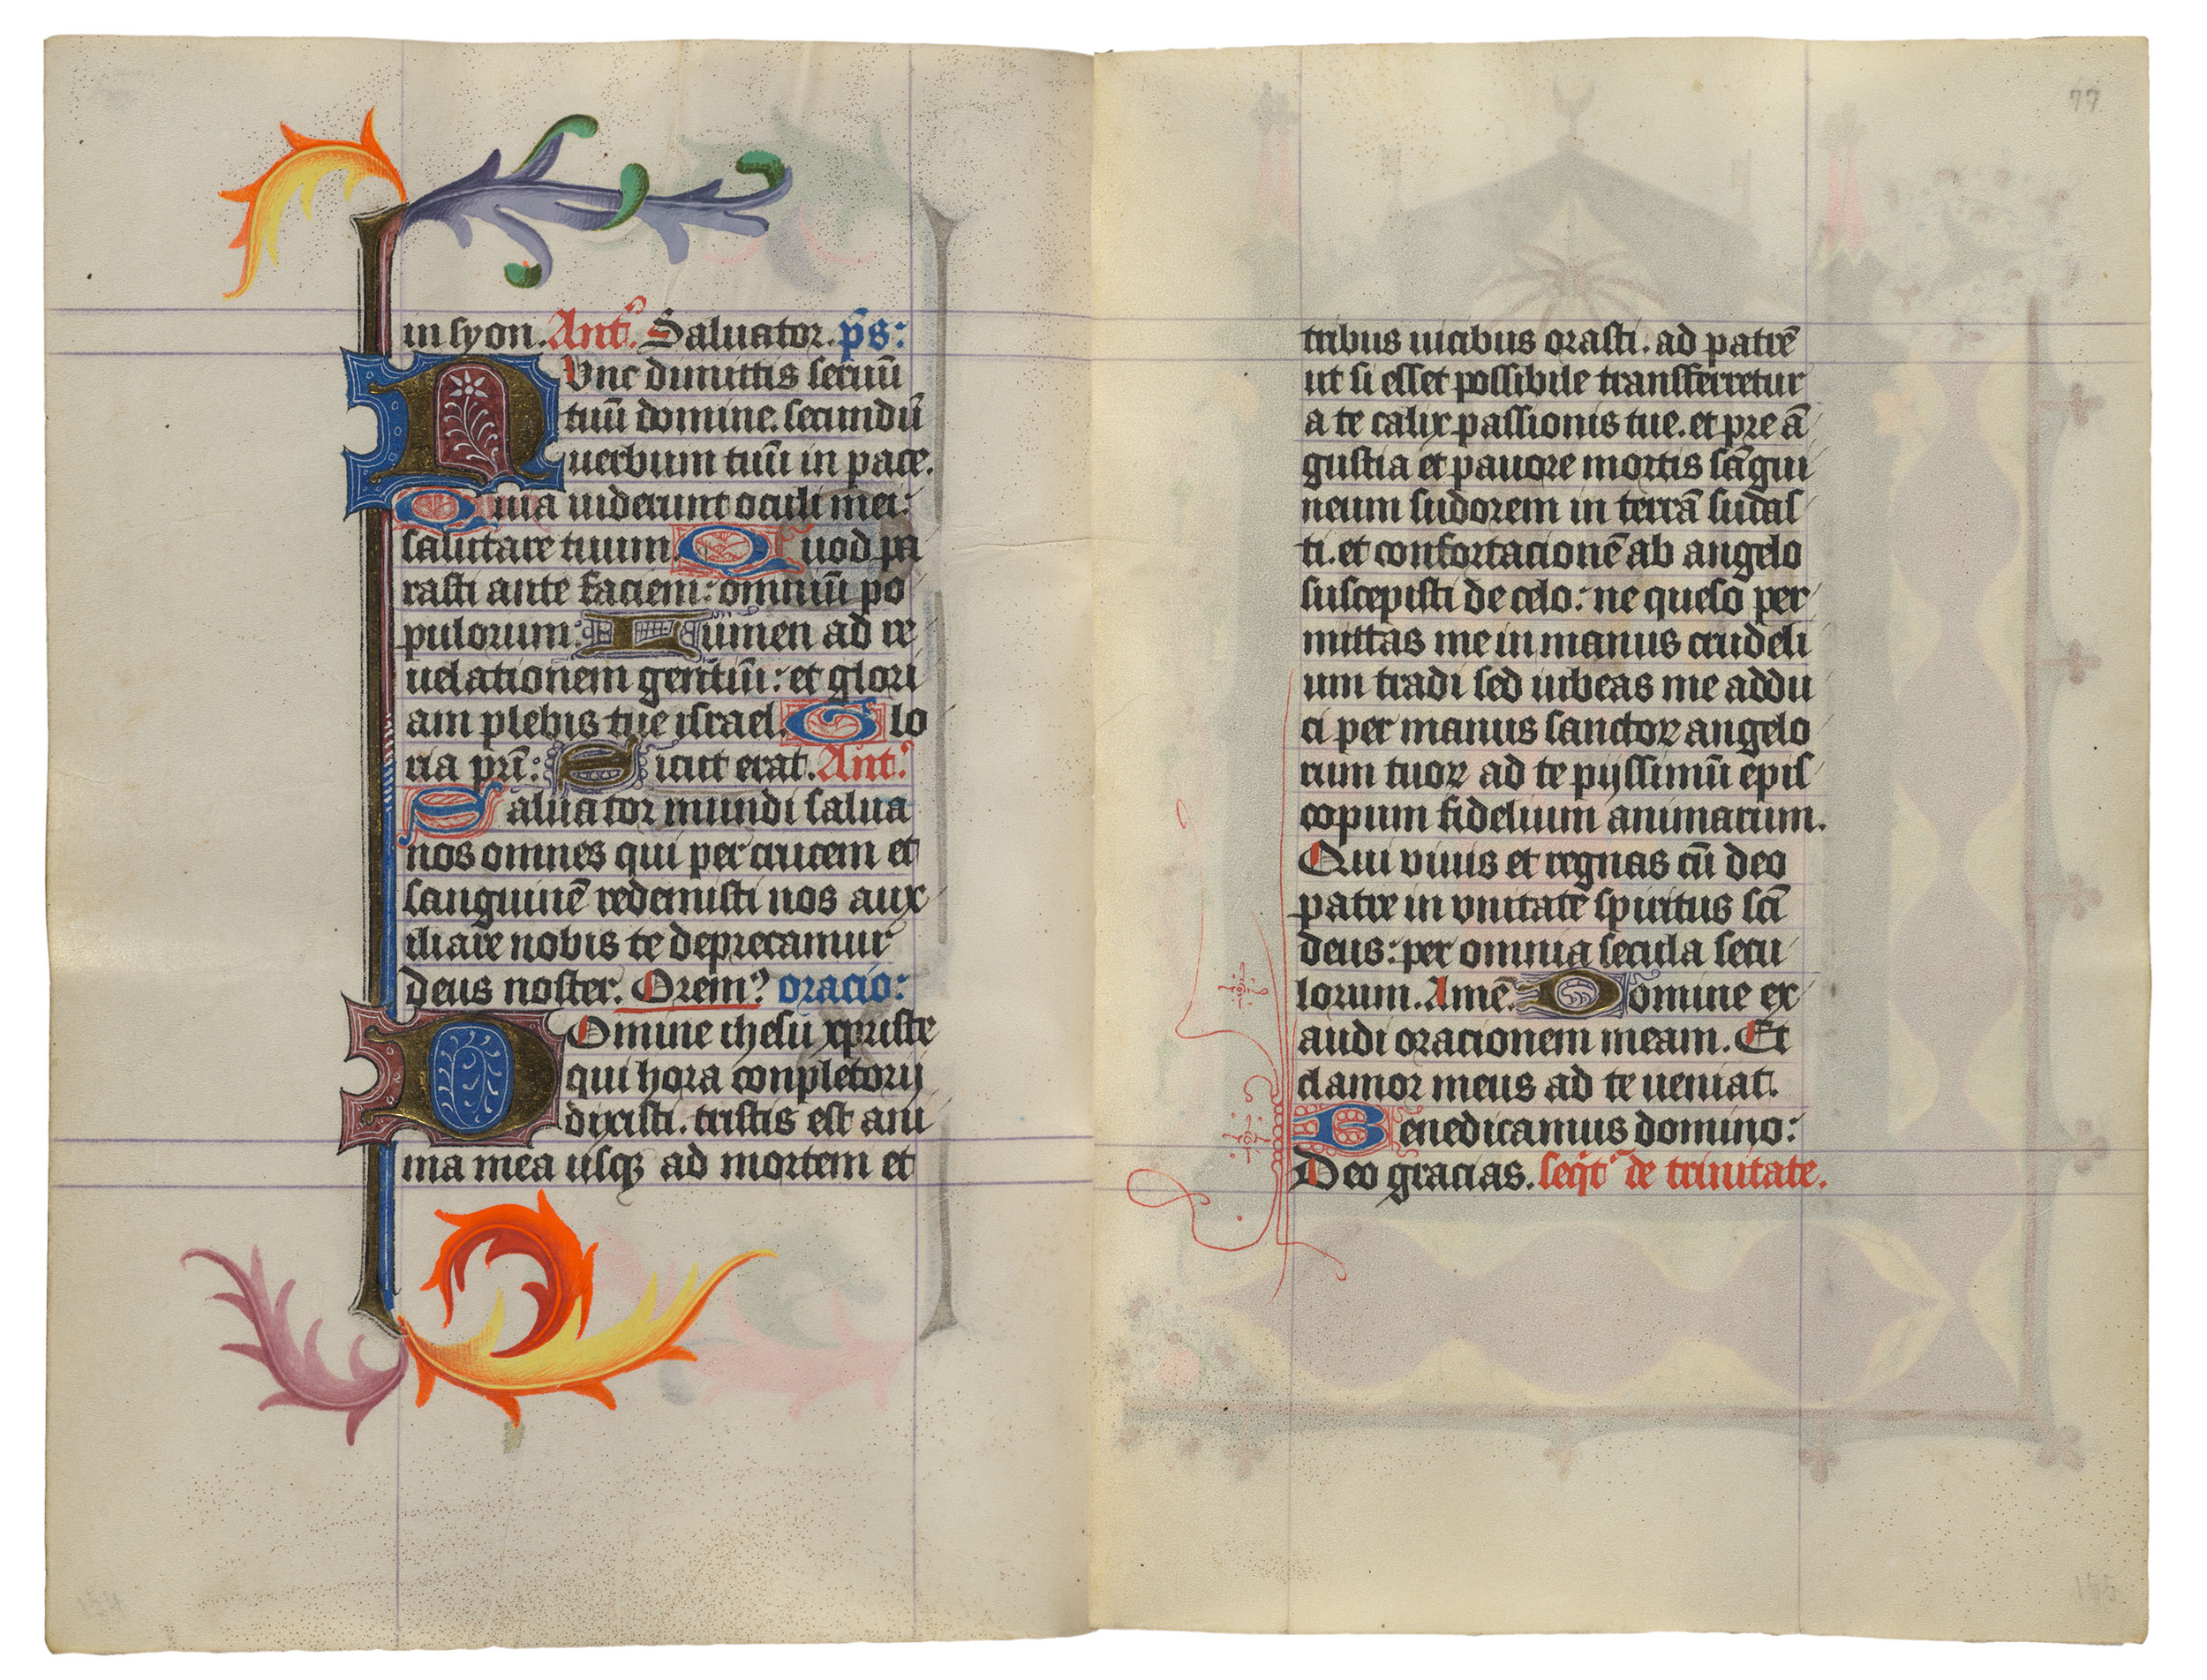 in syon. Ant̄. Saluator. p̄s:
Nvnc dimittis seruū
tuū domine. secundū
uerbum tuū in pace.
Quia uiderunt oculi mei:
salutare tuum. Quod pa
rasti ante faciem: omniū po
pulorum: Lumen ad re
uelationem gentiū: et glori
am plebis tue israel. Glo
ria pr̄i: Sicut erat. Ant̄.
Saluator mundi salua
nos omnes qui per crucem et
sanguinē redemisti nos aux
iliare nobis te deprecamur
deus noster. Oremꝰ oracio:
DOmine ihesu xpriste
qui hora conpletorij
dixisti. tristis est ani
ma mea usqꝫ ad mortem et
77
tribus uicibus orasti. ad patrē
ut si esset possibile transferretur
a te calix passionis tue. et pre ā
gustia et pauore mortis sāgui
neum sudorem in terrā sudas
ti. et confortacionē ab angelo
suscepisti de celo: ne queso per
mittas me in manus crudeli
um tradi sed iubeas me addu
ci per manus sanctoꝝ angelo
rum tuoꝝ ad te pijssimū epis
copum fidelium animarum.
Qui viuis et regnas cū deo
patre in vnitate spiritus sc̄i
deus: per omnia secula secu
lorum. Amē. Domine ex
audi oracionem meam. Et
clamor meus ad te ueniat.
Benedicamus domino:
Deo gracias. seqit᷑ de trinitate.
154
155